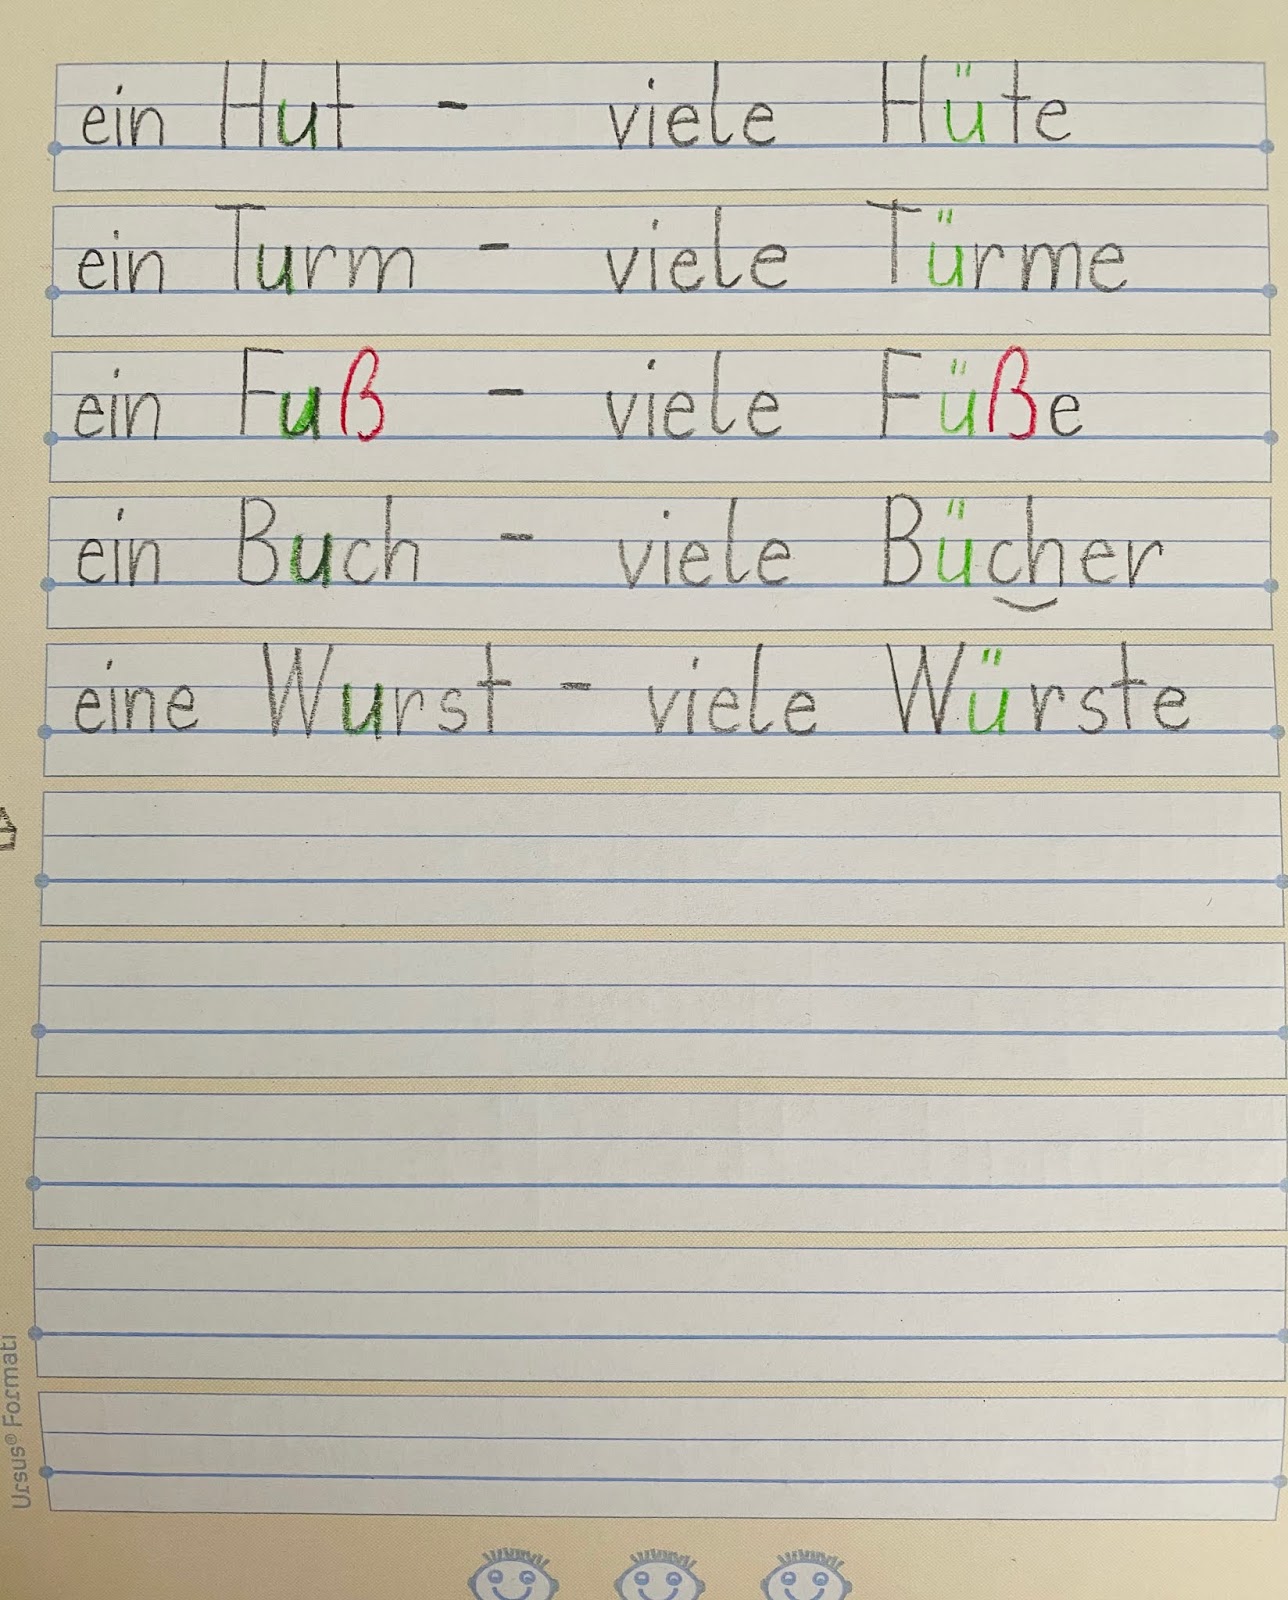 ein Hut - viele Hüte
ein Turm - viele Türme
ein Fuß - viele Füße
ein Buch - viele Bücher
eine Wurst - viele Würste
Ursus® Formati